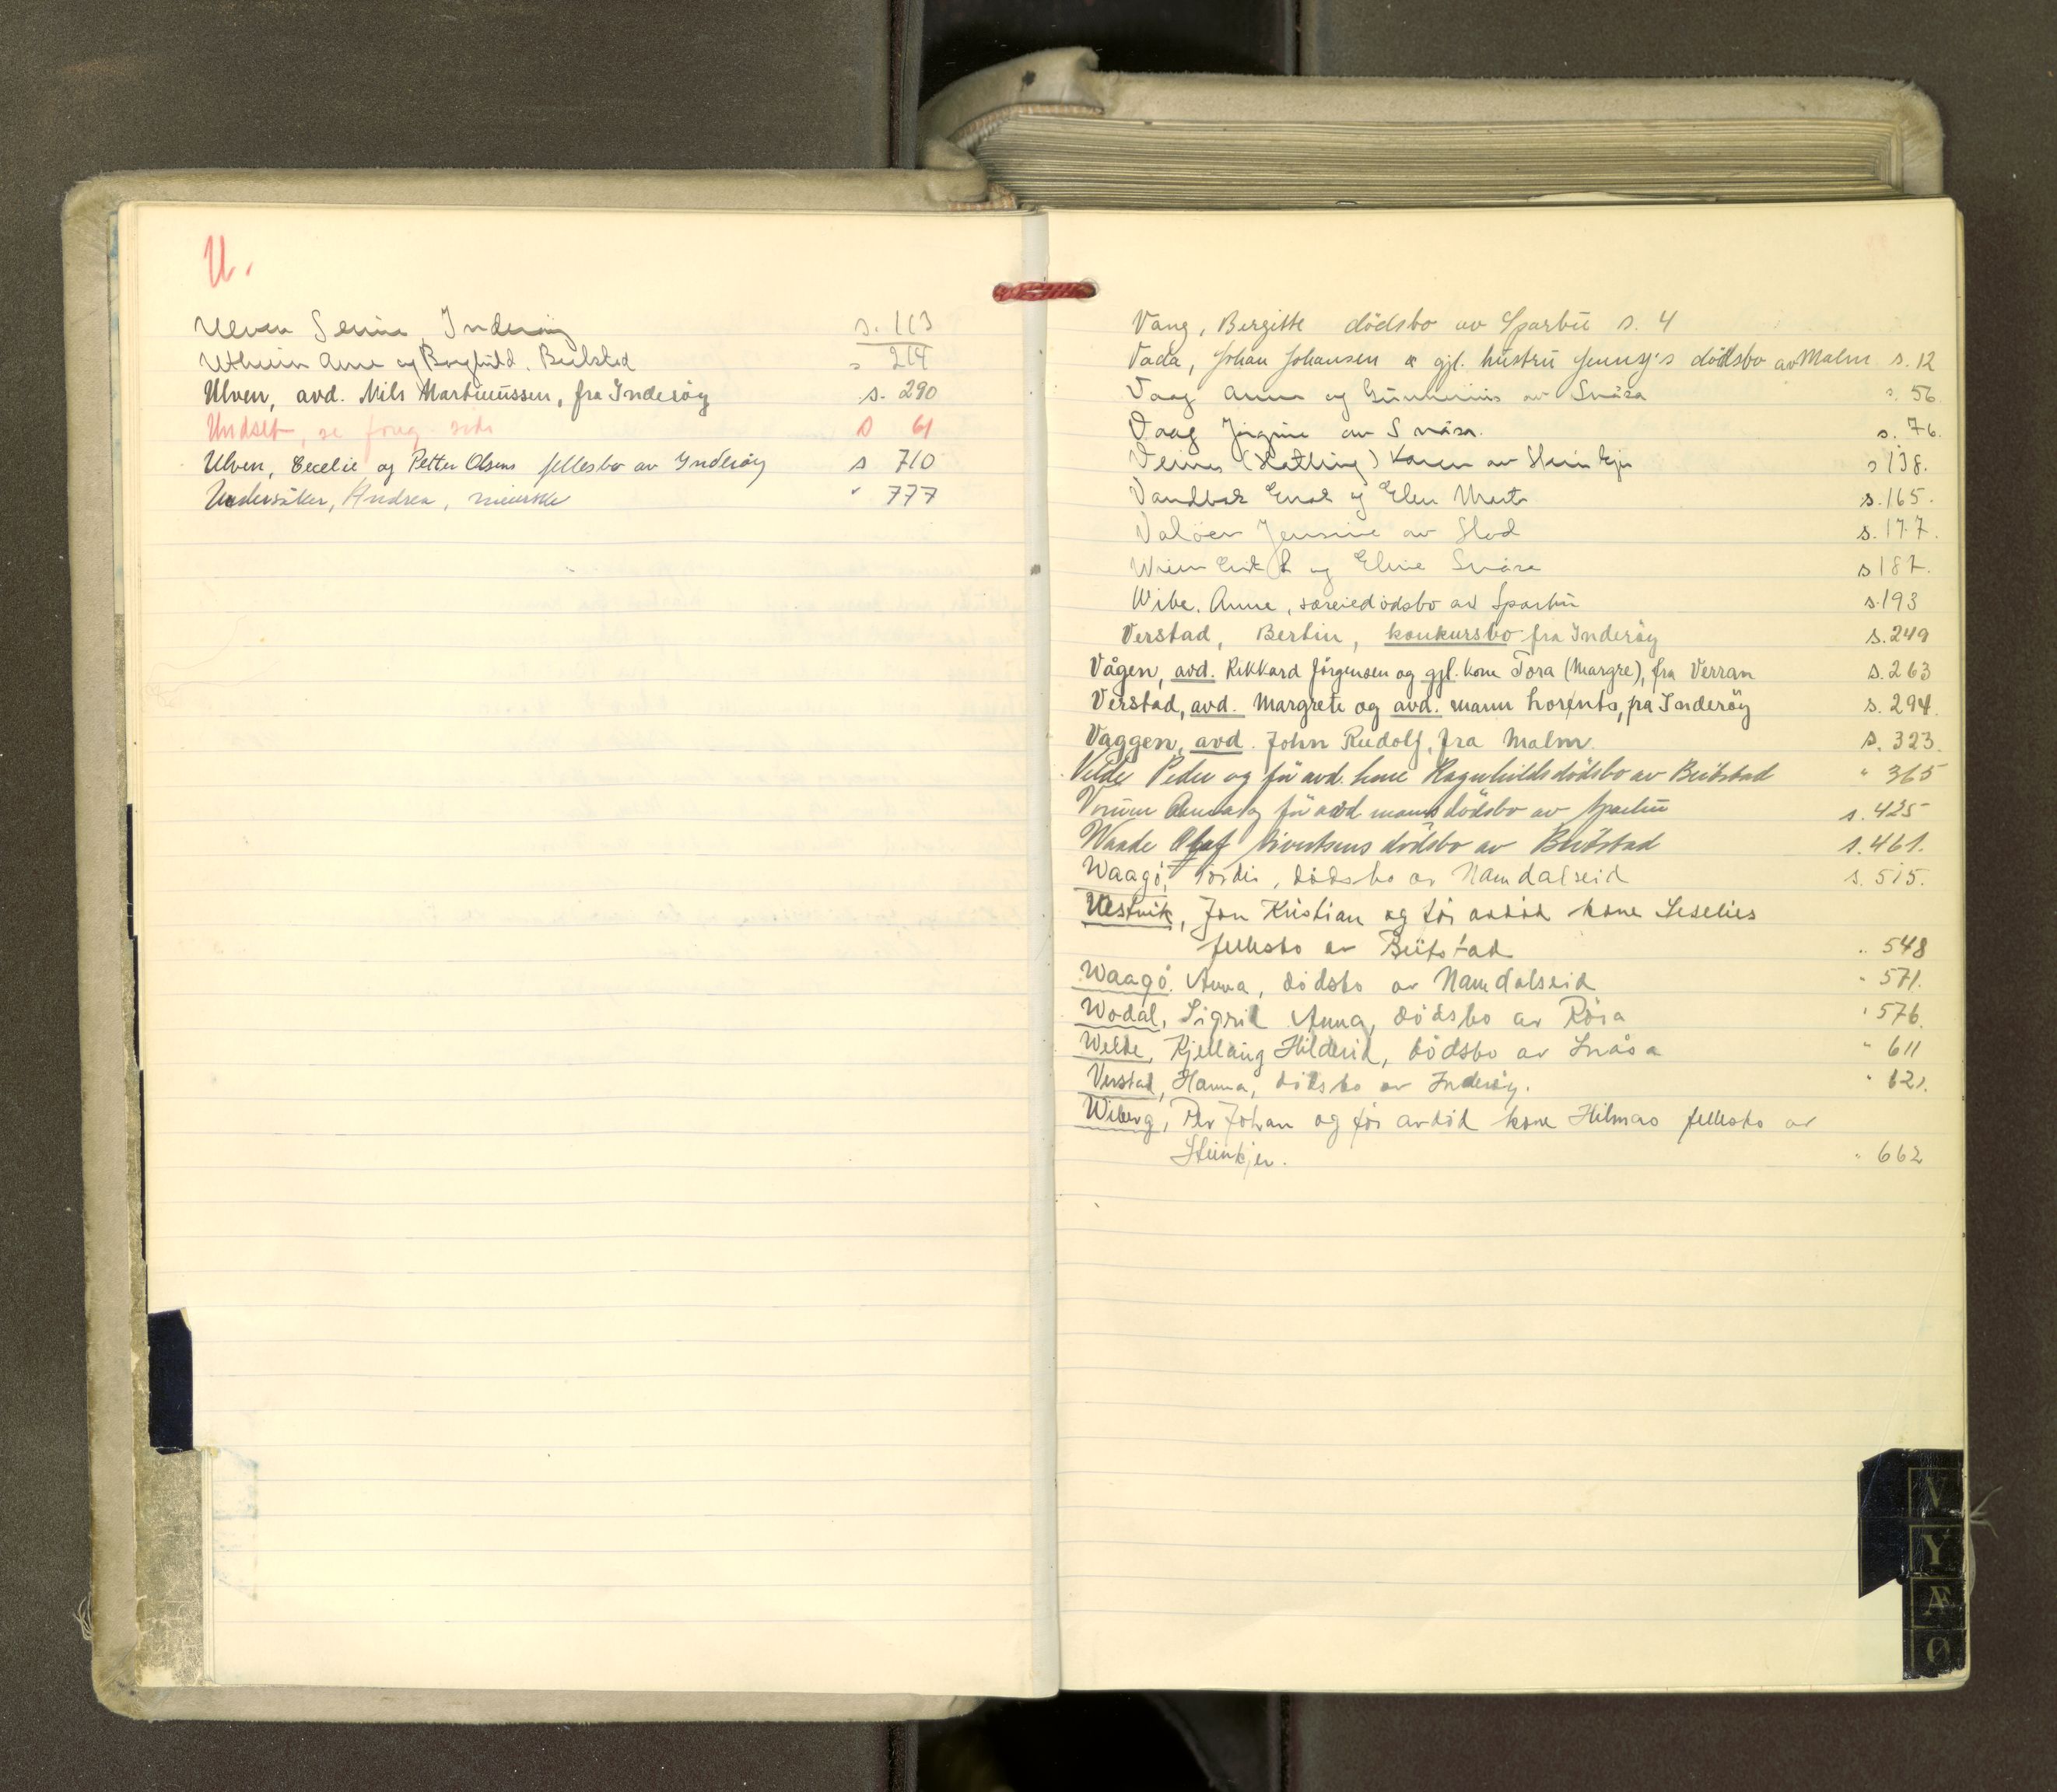 U.
Ulven Serine, Inderøy s. 113
Utheim Arne og Borghild. Beitstad s 214
Ulven, avd. Nils Martinussen, fra Inderøy s. 290
Undset, se foreg. side s 61
Ulven, Cecelie og Petter Olsens fellesbo av Inderøy s 710
Undersåker, Andrea, " 777
Vang, Bergitte dödsbo av Sparbu s. 4
Vada, Johan Johansen & gjl. hustru Jenny's dödsbo av Malm s. 12
Vaag Anne og av Snåsa s. 56
Vaag Jörgine av Snåsa. s. 76.
(Hatling) Karen av Steinkjer s 138.
Vandbak Einar og Elen Marta s. 165.
Valöen Jensine av Stod s. 177.
Wien og Eline Snåsa s 187.
Wibe, Anne, særeiedödsbo av Sparbu s. 193
Verstad, Bertin, konkursbo fra Inderöy s. 249
Vågen, avd. Rikkard Jörgensen og gjl. kone Tora (Margre), fra Verran s. 263
Verstad, avd. Margrete og avd. mann Lorents, fra Inderöy s. 294.
Vaggen, avd. John Rudolf, fra Malm. s. 323.
Velde Peder og för avd. kone Ragnhilds dödsbo av Beitstad " 365
Vorum Anna og för avd manns dödsbo av Sparbu s. 425
Waade Olaf Sivertsens dödsbo av Beitstad s. 461.
Waagö, Tordis, dödsbo av Namdalseid s. 515.
Vestvik, Jon Kristian og för avdöd kone Seselies
fellesbo av Beitstad " 548
Waagö. Anna, dödsbo av Namdalseid " 571.
Wodal, Sigrid Anna, dödsbo av Röra " 576.
Welde, Kjellaug Hildurid, dödsbo av Snåsa " 611
Verstad, Hanna, dödsbo av Inderöy. " 621.
Wiberg, Per Johan og för avdöd kone Hilmas fellesbo av
Steinkjer. " 662
V
Y
Æ
Ø